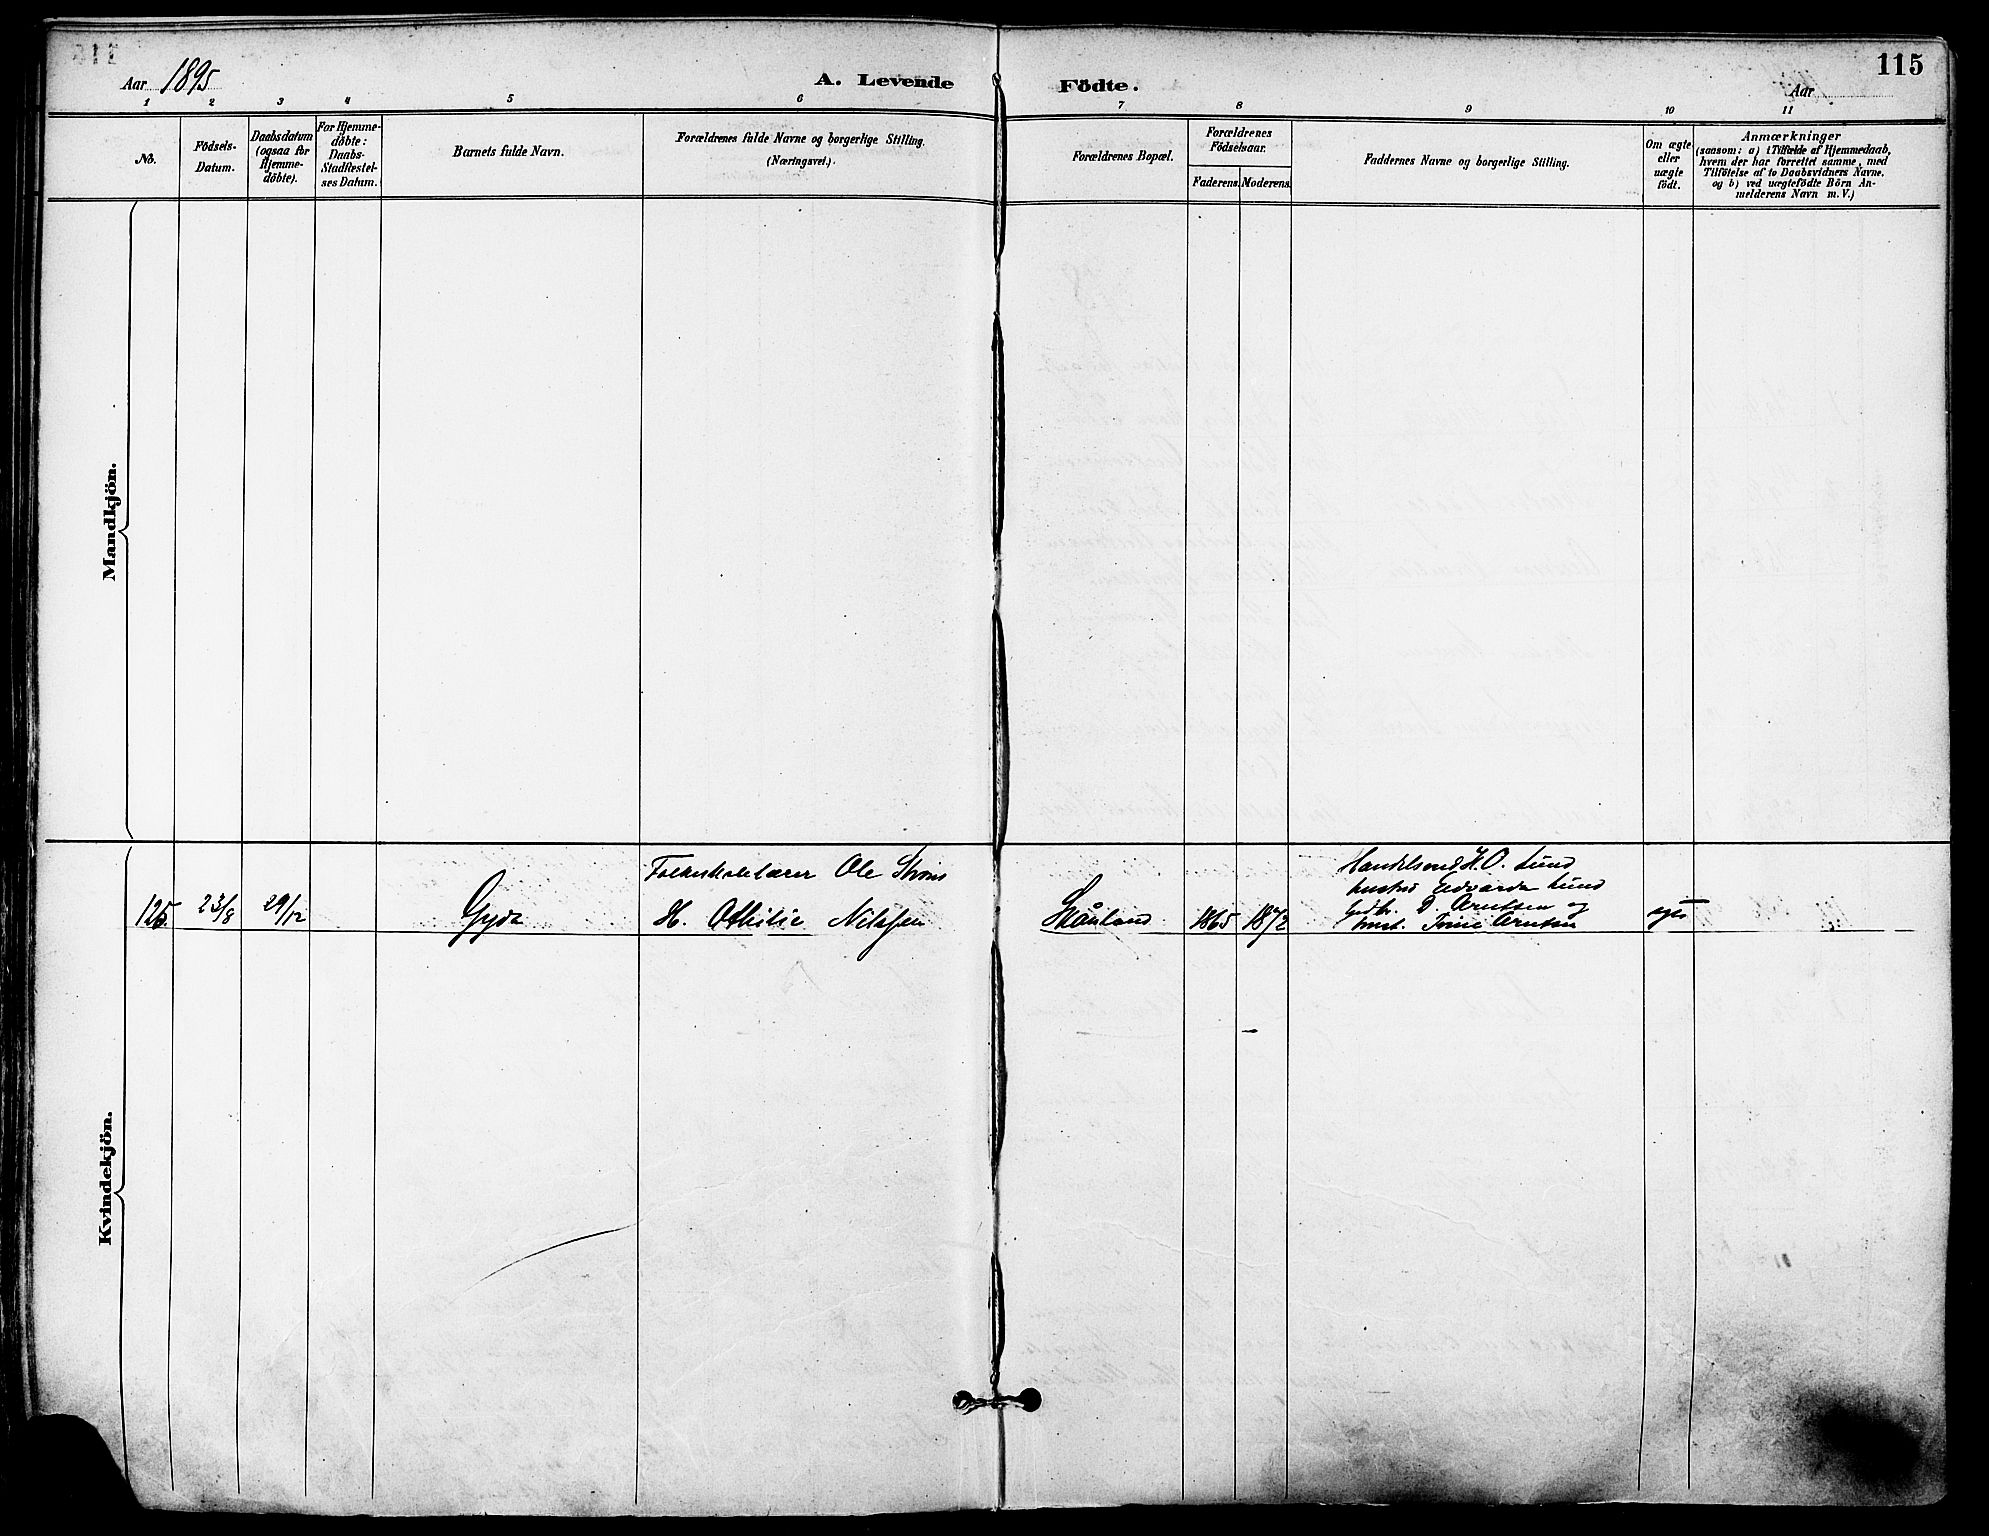 115
Aar 1895
A. Levende Födte.
Aar
1 2 3 4 5 6 7 8 9 10 11
No.
Födsels-
Datum.
Daabsdatum
(ogsaa for
Hjemme-
döbte).
For Hjemme-
döbte:
Daabs-
Stadfæstel-
ses Datum.
Barnets fulde Navn.
Forældrenes fulde Navne og borgerlige Stilling.
(Næringsvei).
Forældrenes Bopæl.
Forældrenes
Födselsaar.
Faderens.
Moderens.
Faddernes Navne og borgerlige Stilling.
Om ægte
eller
uægte
födt.
Anmærkninger
(saasom: a) i Tilfælde af Hjemmedaab,
hvem der har forrettet samme, med
Tilföielse af to Daabsvidners Navne.
og b) ved uægtefödte Börn An-
melderens Navn m. V.)
Mandkjön.
Kvindekjön.
125
23/8
29/12
Gyda
Folkeskolelærer Ole
H. Othilie Nilssen
Skånland
1865
1872
Handelsm. H. O. Lund
hustru Edvarda Lund
Gdbr. D. Arntsen og
hust. Trine Arntsen